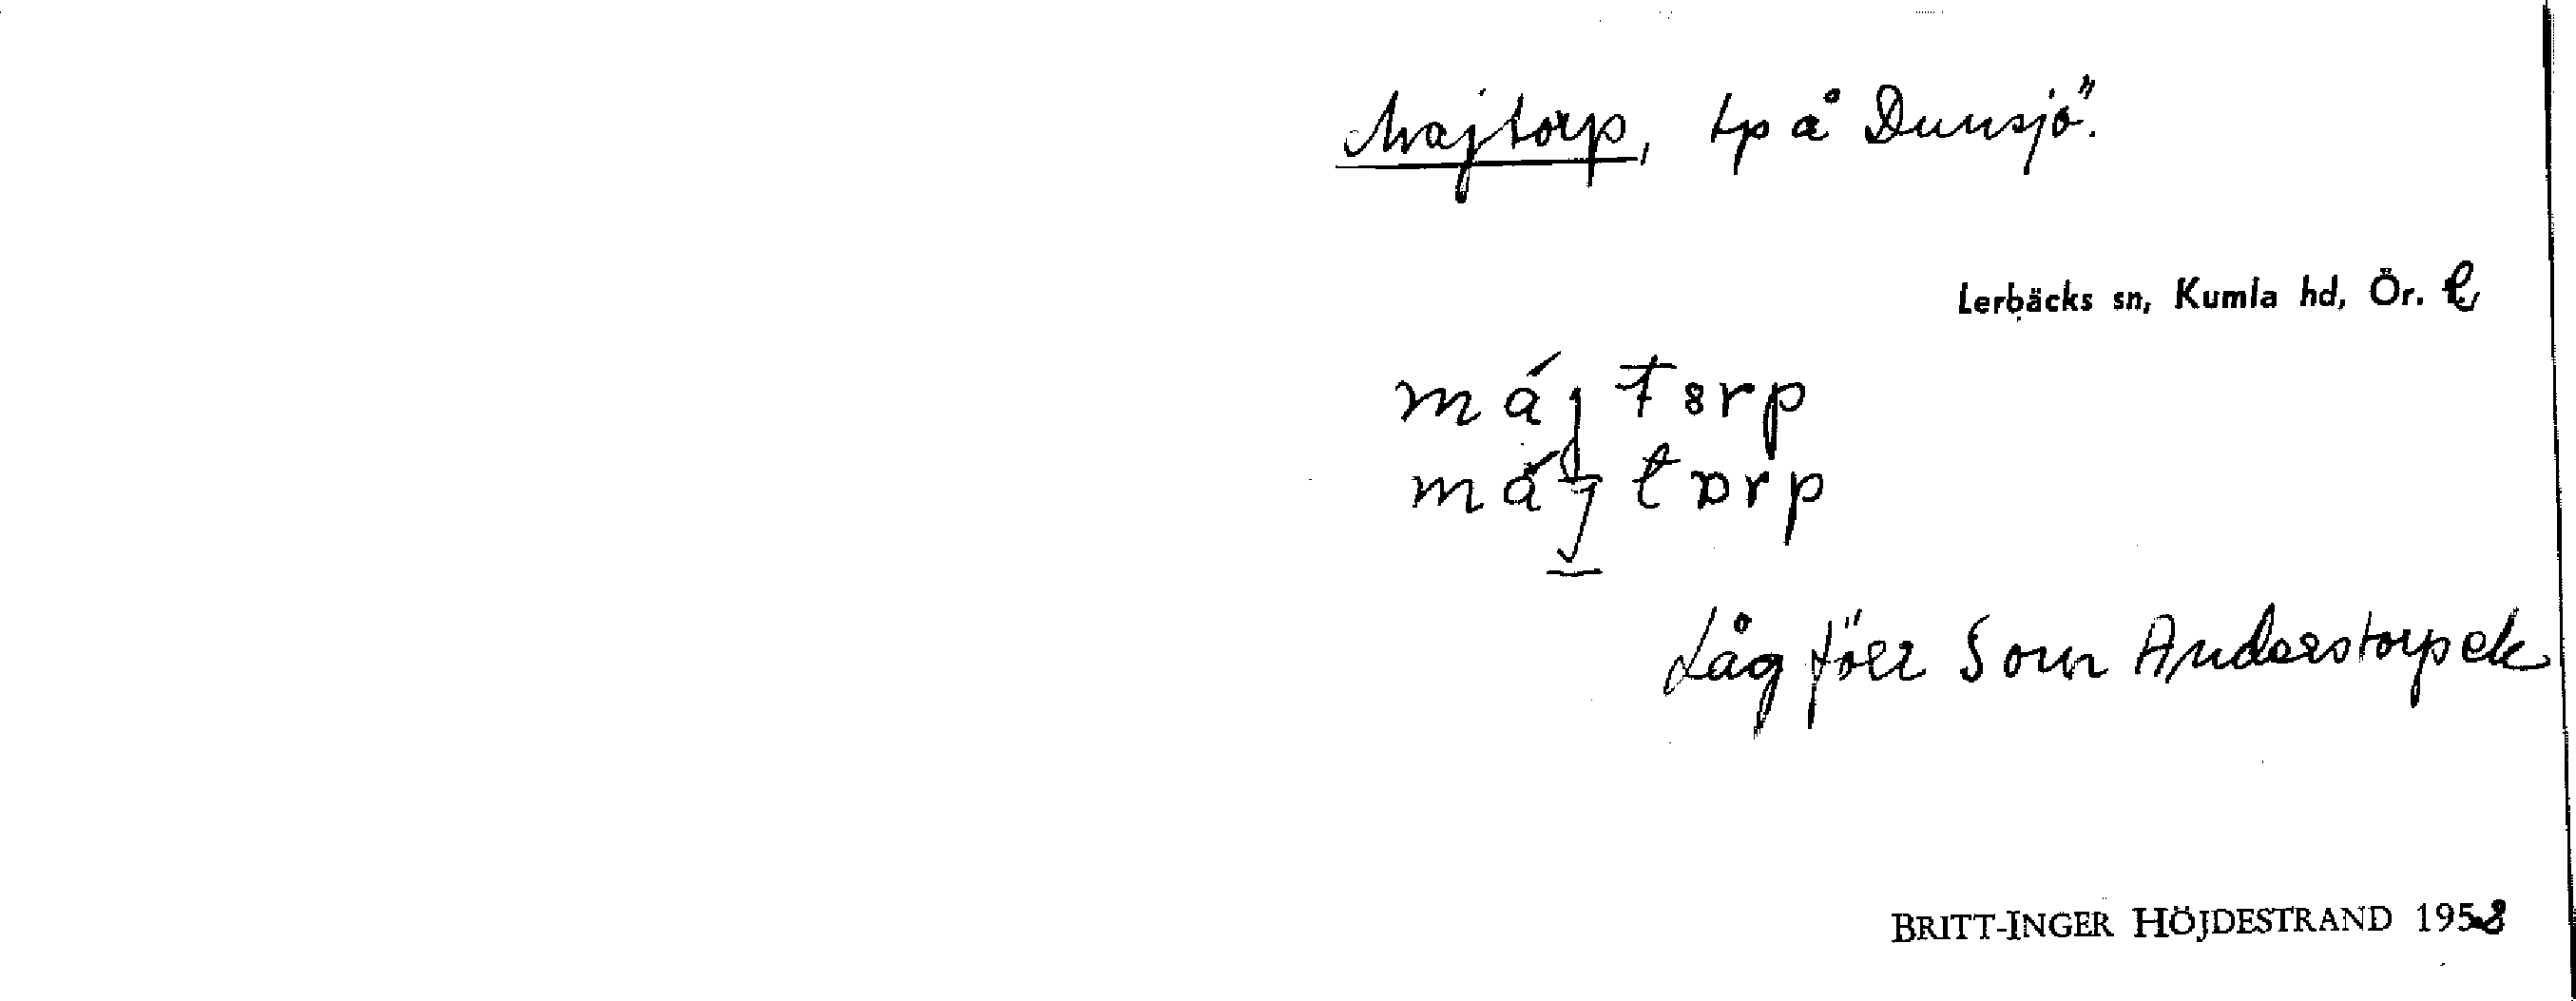 Majtorp, tp å Dunsjö".
Lerbäcks sn, Kumla hd, Ör. l
máj t8rp
máj tɒrp
Låg förr S om Anderstorp ek
BRITT-INGER HÖJDESTRAND 1958